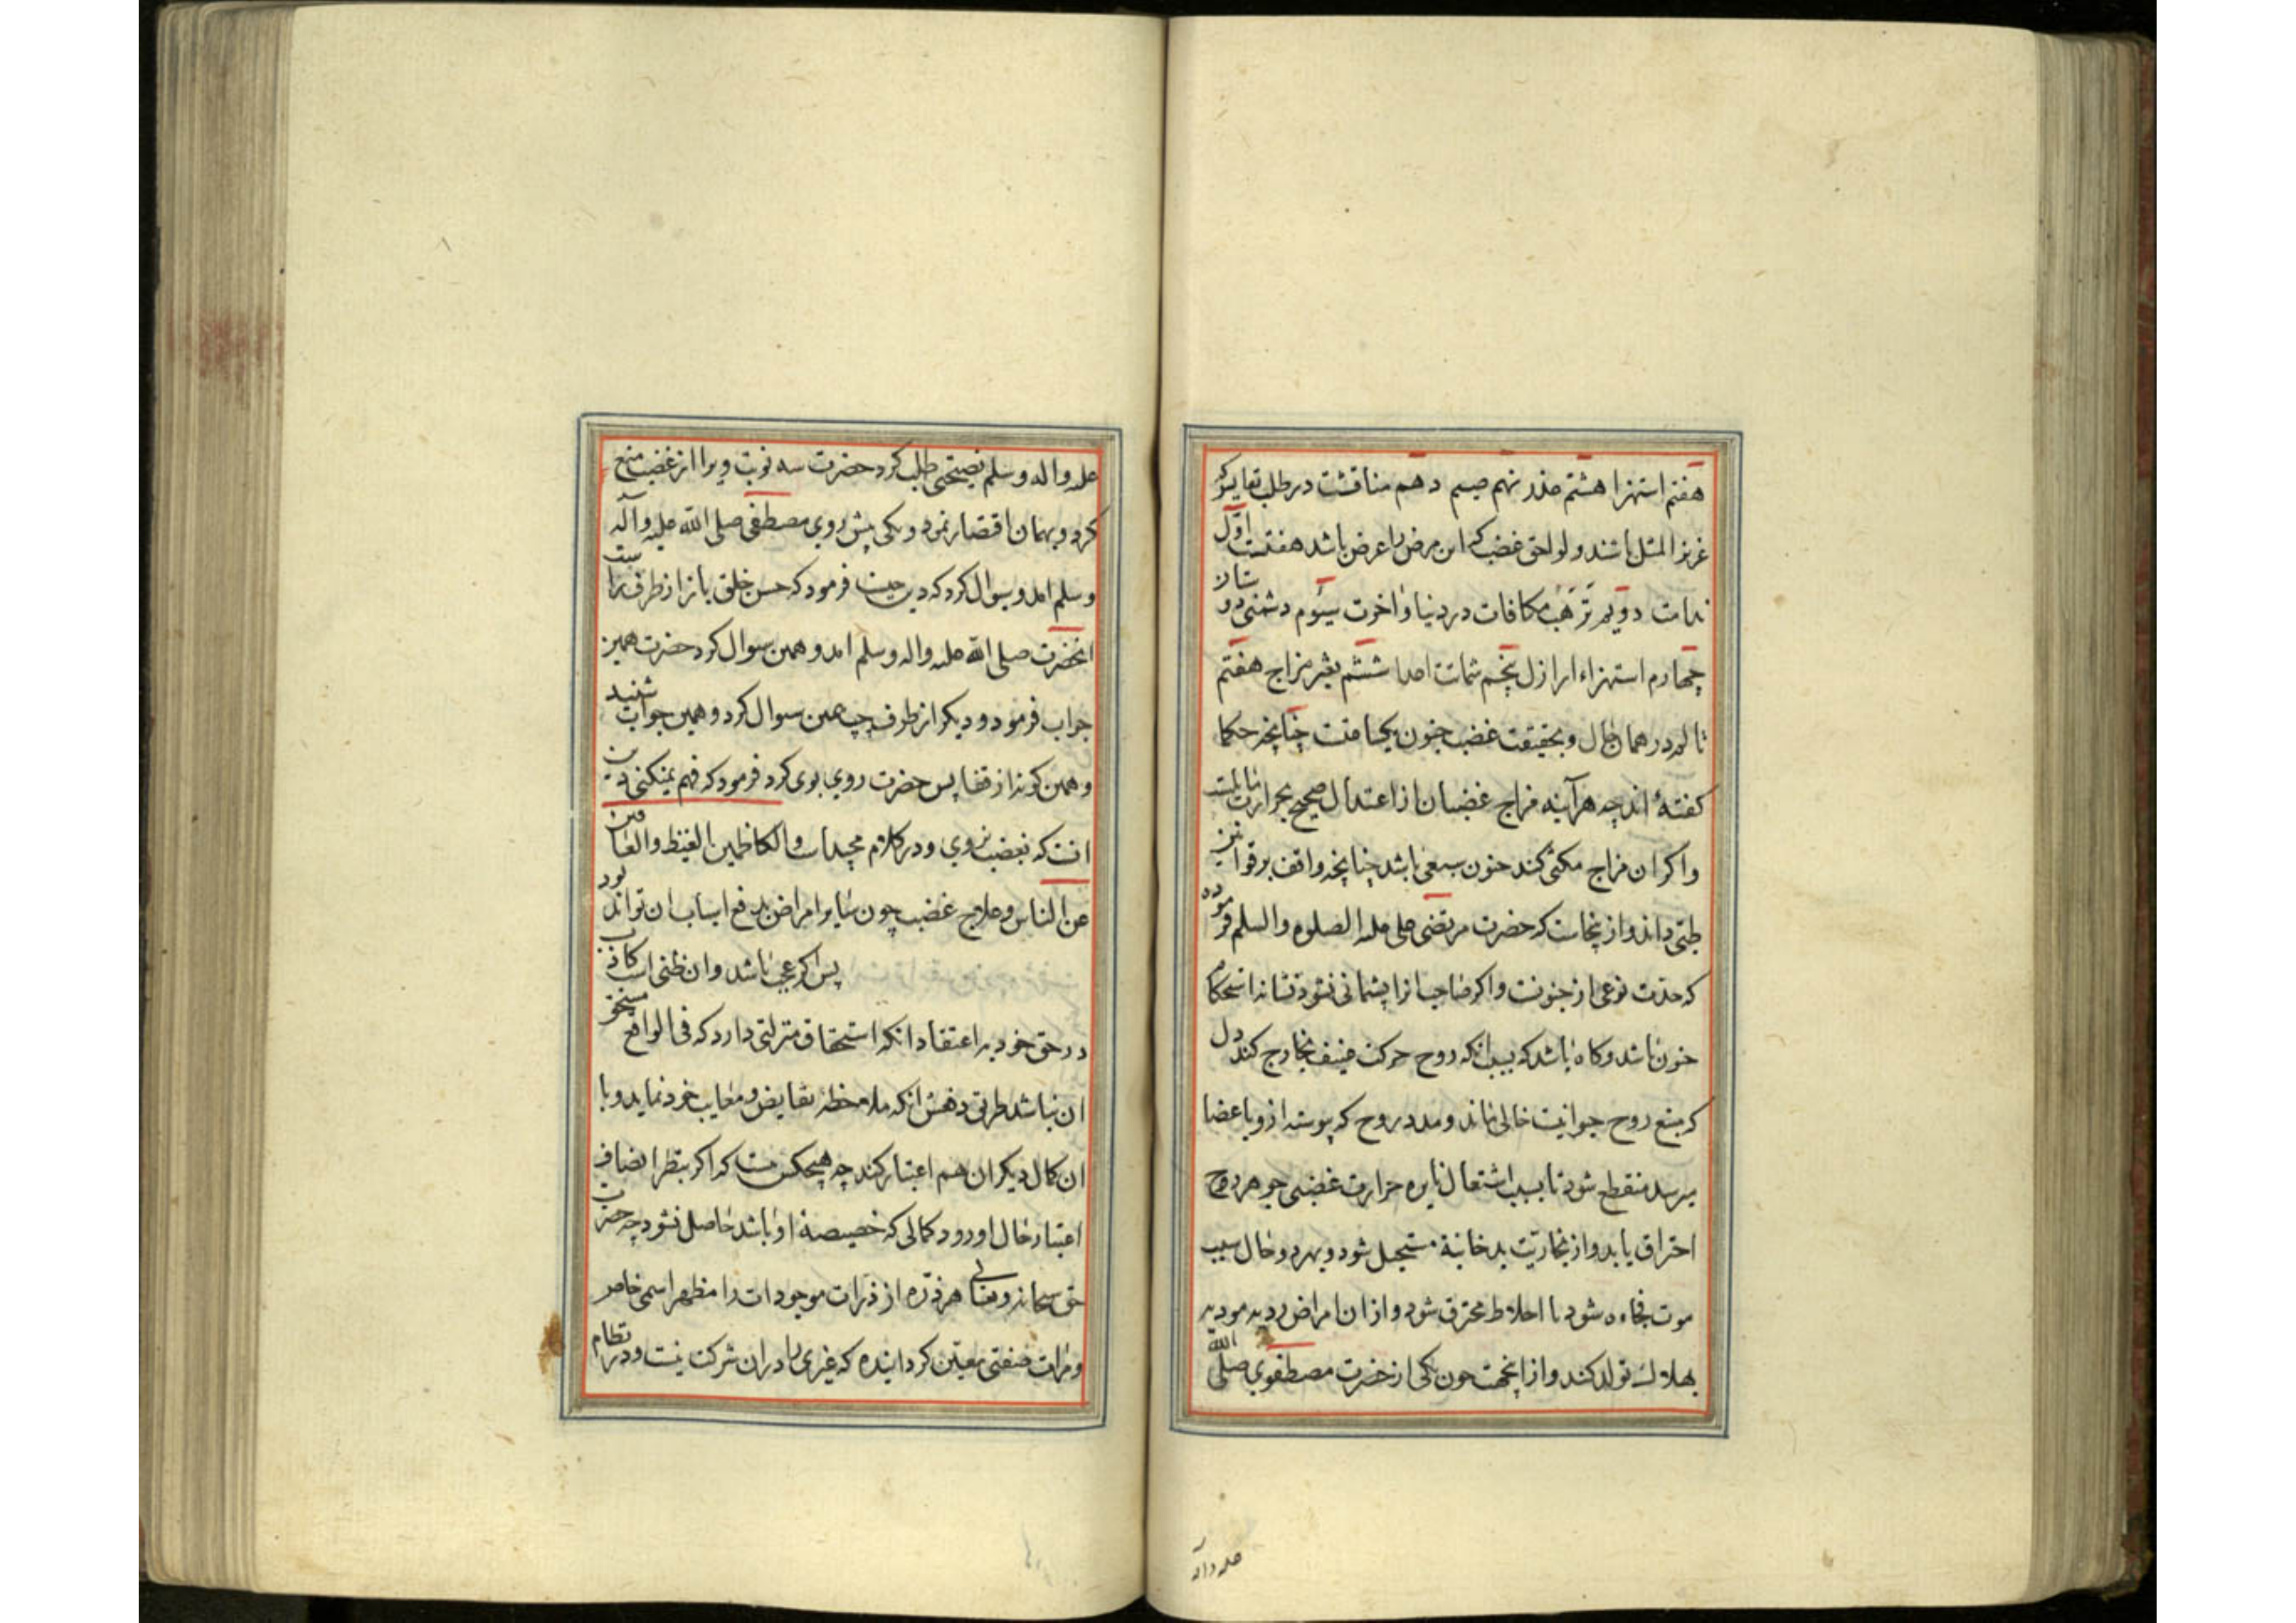 هفتم استهزا هشتم غدر نهم ضیم دهم مناقشت در طلب نفایسی که
عزیز المثل باشند و لواحق غضب که این مرض را عرض باشد هفتست اوّل
ندامت دویم ترقب مکافات در دنیا و اخرت سیوم دشمنی دوستان
چهارم استهزاء اراذل پنجم شماتت اعدا ششم تغیر مزاج هفتم
تالم در همان حال و بحقیقت غضب جنون یکساعتست چنانچه حکما
گفتهٔ اند چه هرآینه مزاج غضبان از اعتدال صحیح بحرارت مایلست
و اکر ان مزاج مکثی کند جنون سبعی باشد چنانچه واقف بر قوانین
طبّی داند و ازینجاست که حضرت مرتضی علی علیه الصلوه والسلم فرموده
که حدّت نوعی از جنونست و اکر صاحب انرا پشیمانی نشود نشانه استحکام
جنون باشد و کاه باشد که بسبب انکه روح حرکت عنیف بخارج کند دل
که منبع روح حیوانیست خالی ماند و مدد روح که پیوسته ازو باعضا
میرسد منقطع شود تا بسبب اشتعال نایره حرارت غضبی جوهر روح
احتراق یابد و از بخاریّت بدخانیة مستحیل شود و بهر دو حال سبب
موت فجاءه شود یا اخلاط محترق شود و از ان امراض ردیه مودیه
بهلاک تولد کند و از اینجهت چون یکی از حضرت مصطفوی صلی الله
علیه وآله
علیه واله وسلم نصیحتی طلب کرد حضرت سه نوبت ویرا از غضب منع
کرد و بهمان اقتصار نمود و یکی پیش روی مصطفی صلی الله علیه وآله
وسلم امد و سوال کرد که دین چیست فرمود که حسن خلق باز از طرف راست
انحضرت صلی الله علیه واله وسلم امد و همین سوال کرد حضرت همین
جواب فرمود و دیکر از طرف چپ همین سوال کرد و همین جواب شنید
و همین کونه از قفا پس حضرت روی بوی کرد فرمود که فهم نمیکنی دین
انست که بغضب نروی و در کلام مجید است والکاظمین الغیظ والعافین
عن الناس و علاج غضب چون سایر امراض بدفع اسباب ان تواند بود
پس اکر عجب باشد و ان ظنی است کاذب
در حق خود به اعتقاد انکه استحقاق منزلتی دارد که فی الواقع مستحق
ان نباشد طریق دفعش انکه ملاحظه نقایص و معایب خود نماید و با
ان کمال دیکران هم اعتبار کند چه هیچکس نیست که اکر بنظر انصاف
اعتبار حال او رود کمالی که خصیصة او باشد حاصل نشود چه حضرت
حق سبحانه و تعالی هر ذرّه از ذرات موجودات را مظهر اسمی خاص
و مرات صفتی معیّن کردانیده که غیری را در ان شرکت نیست و در نظام